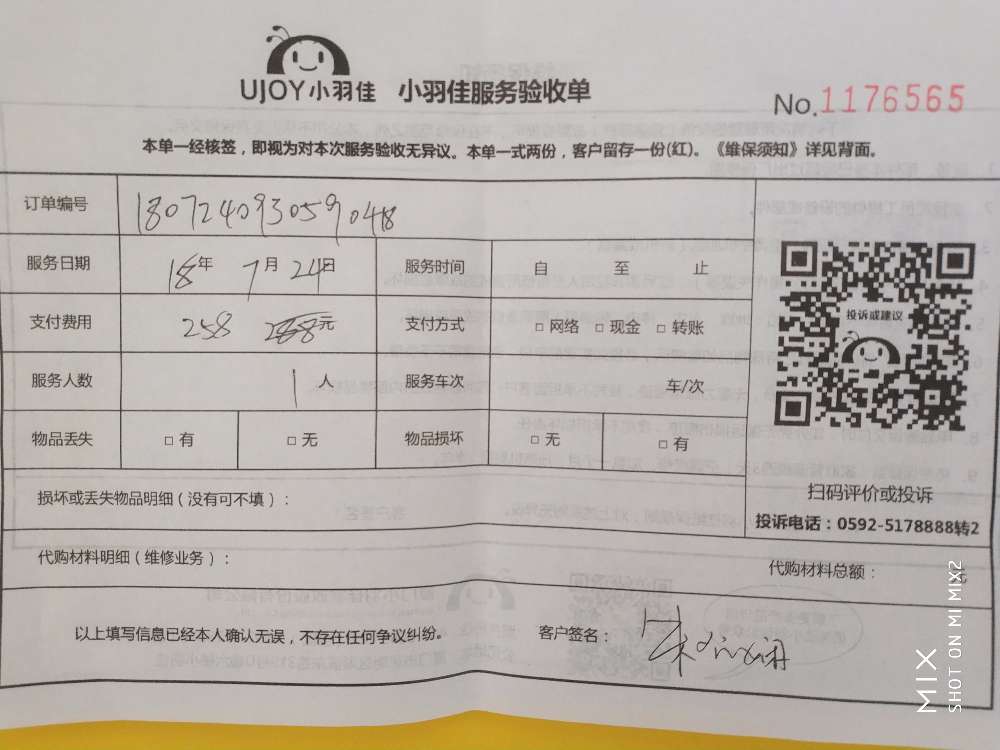 UJOY小羽佳 小羽佳服务验收单
No.1176565
本单一经核签，即视为对本次服务验收无异议。本单一式两份，客户留存一份(红)。《维保须知》详见背面。
订单编号 18072409305904818
服务日期 18年 7月 24日 服务时间 自 至 止
支付费用 258 元 支付方式 □ 网络 □ 现金 □ 转账
投诉或建议
服务人数 1 人 服务车次 车/次
物品丢失 □ 有 □ 无 物品损坏 □ 无 □ 有
损坏或丢失物品明细（没有可不填）：
扫码评价或投诉
投诉电话：0592-5178888转2
代购材料明细（维修业务）：
代购材料总额：
以上填写信息已经本人确认无误，不存在任何争议纠纷。
客户签名：朱
MIX
SHOT ON MI MIX2